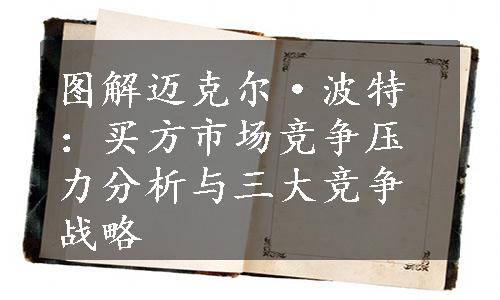 图解迈克尔·波特
：买方市场竞争压
力分析与三大竞争
战略